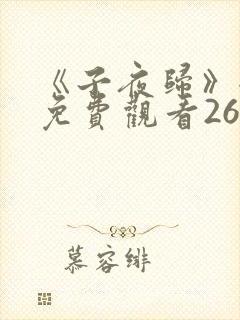 《子夜歸》
免費觀看26
慕容緋